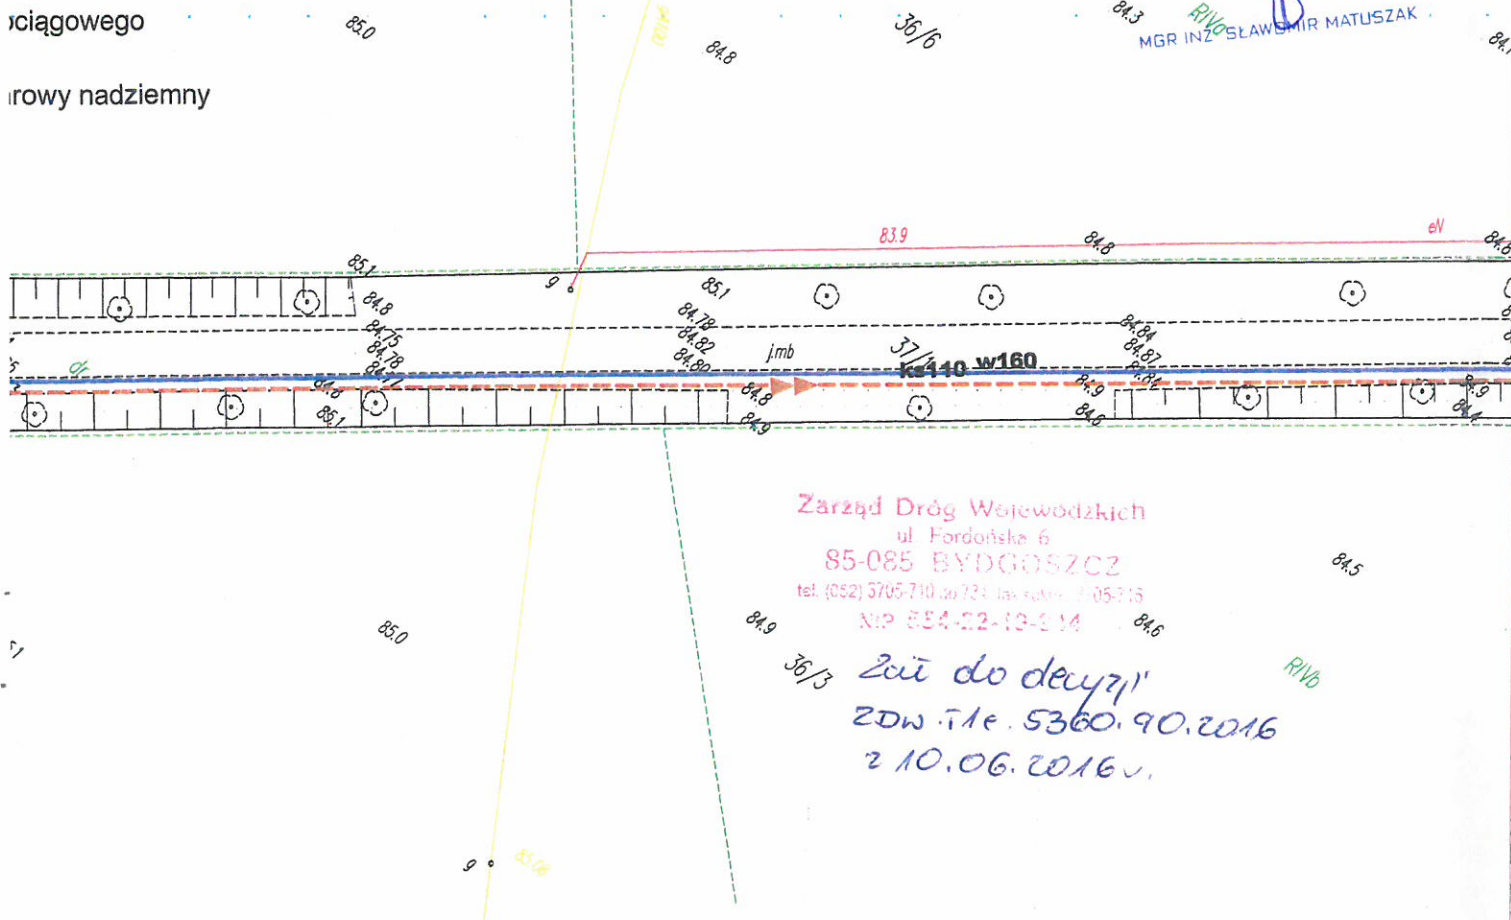 ociągowego
rowy nadziemny
85.0
84.8
36/6
84.3
RIVa
MGR INŻ SŁAWOMIR MATUSZAK
83.9
84.8
eN
84.8
85.1
g
85.1
84.8
84.75
84.78
84.77
84.78
84.82
84.80
j.mb
37/1
ks110 w160
84.84
84.87
84.84
dr
84.8
85.1
84.8
84.9
84.9
84.6
84.9
84.4
Zarząd Dróg Wojewódzkich
ul Fordońska 6
85-085 BYDGOSZCZ
tel. (052) 3705-710 do
NIP 554-22-19-
85.0
84.9
84.6
84.5
36/3
RIVb
Zał do decyzji
ZDW.T1e.5360.90.2016
z 10.06.2016 r.
g
85.08